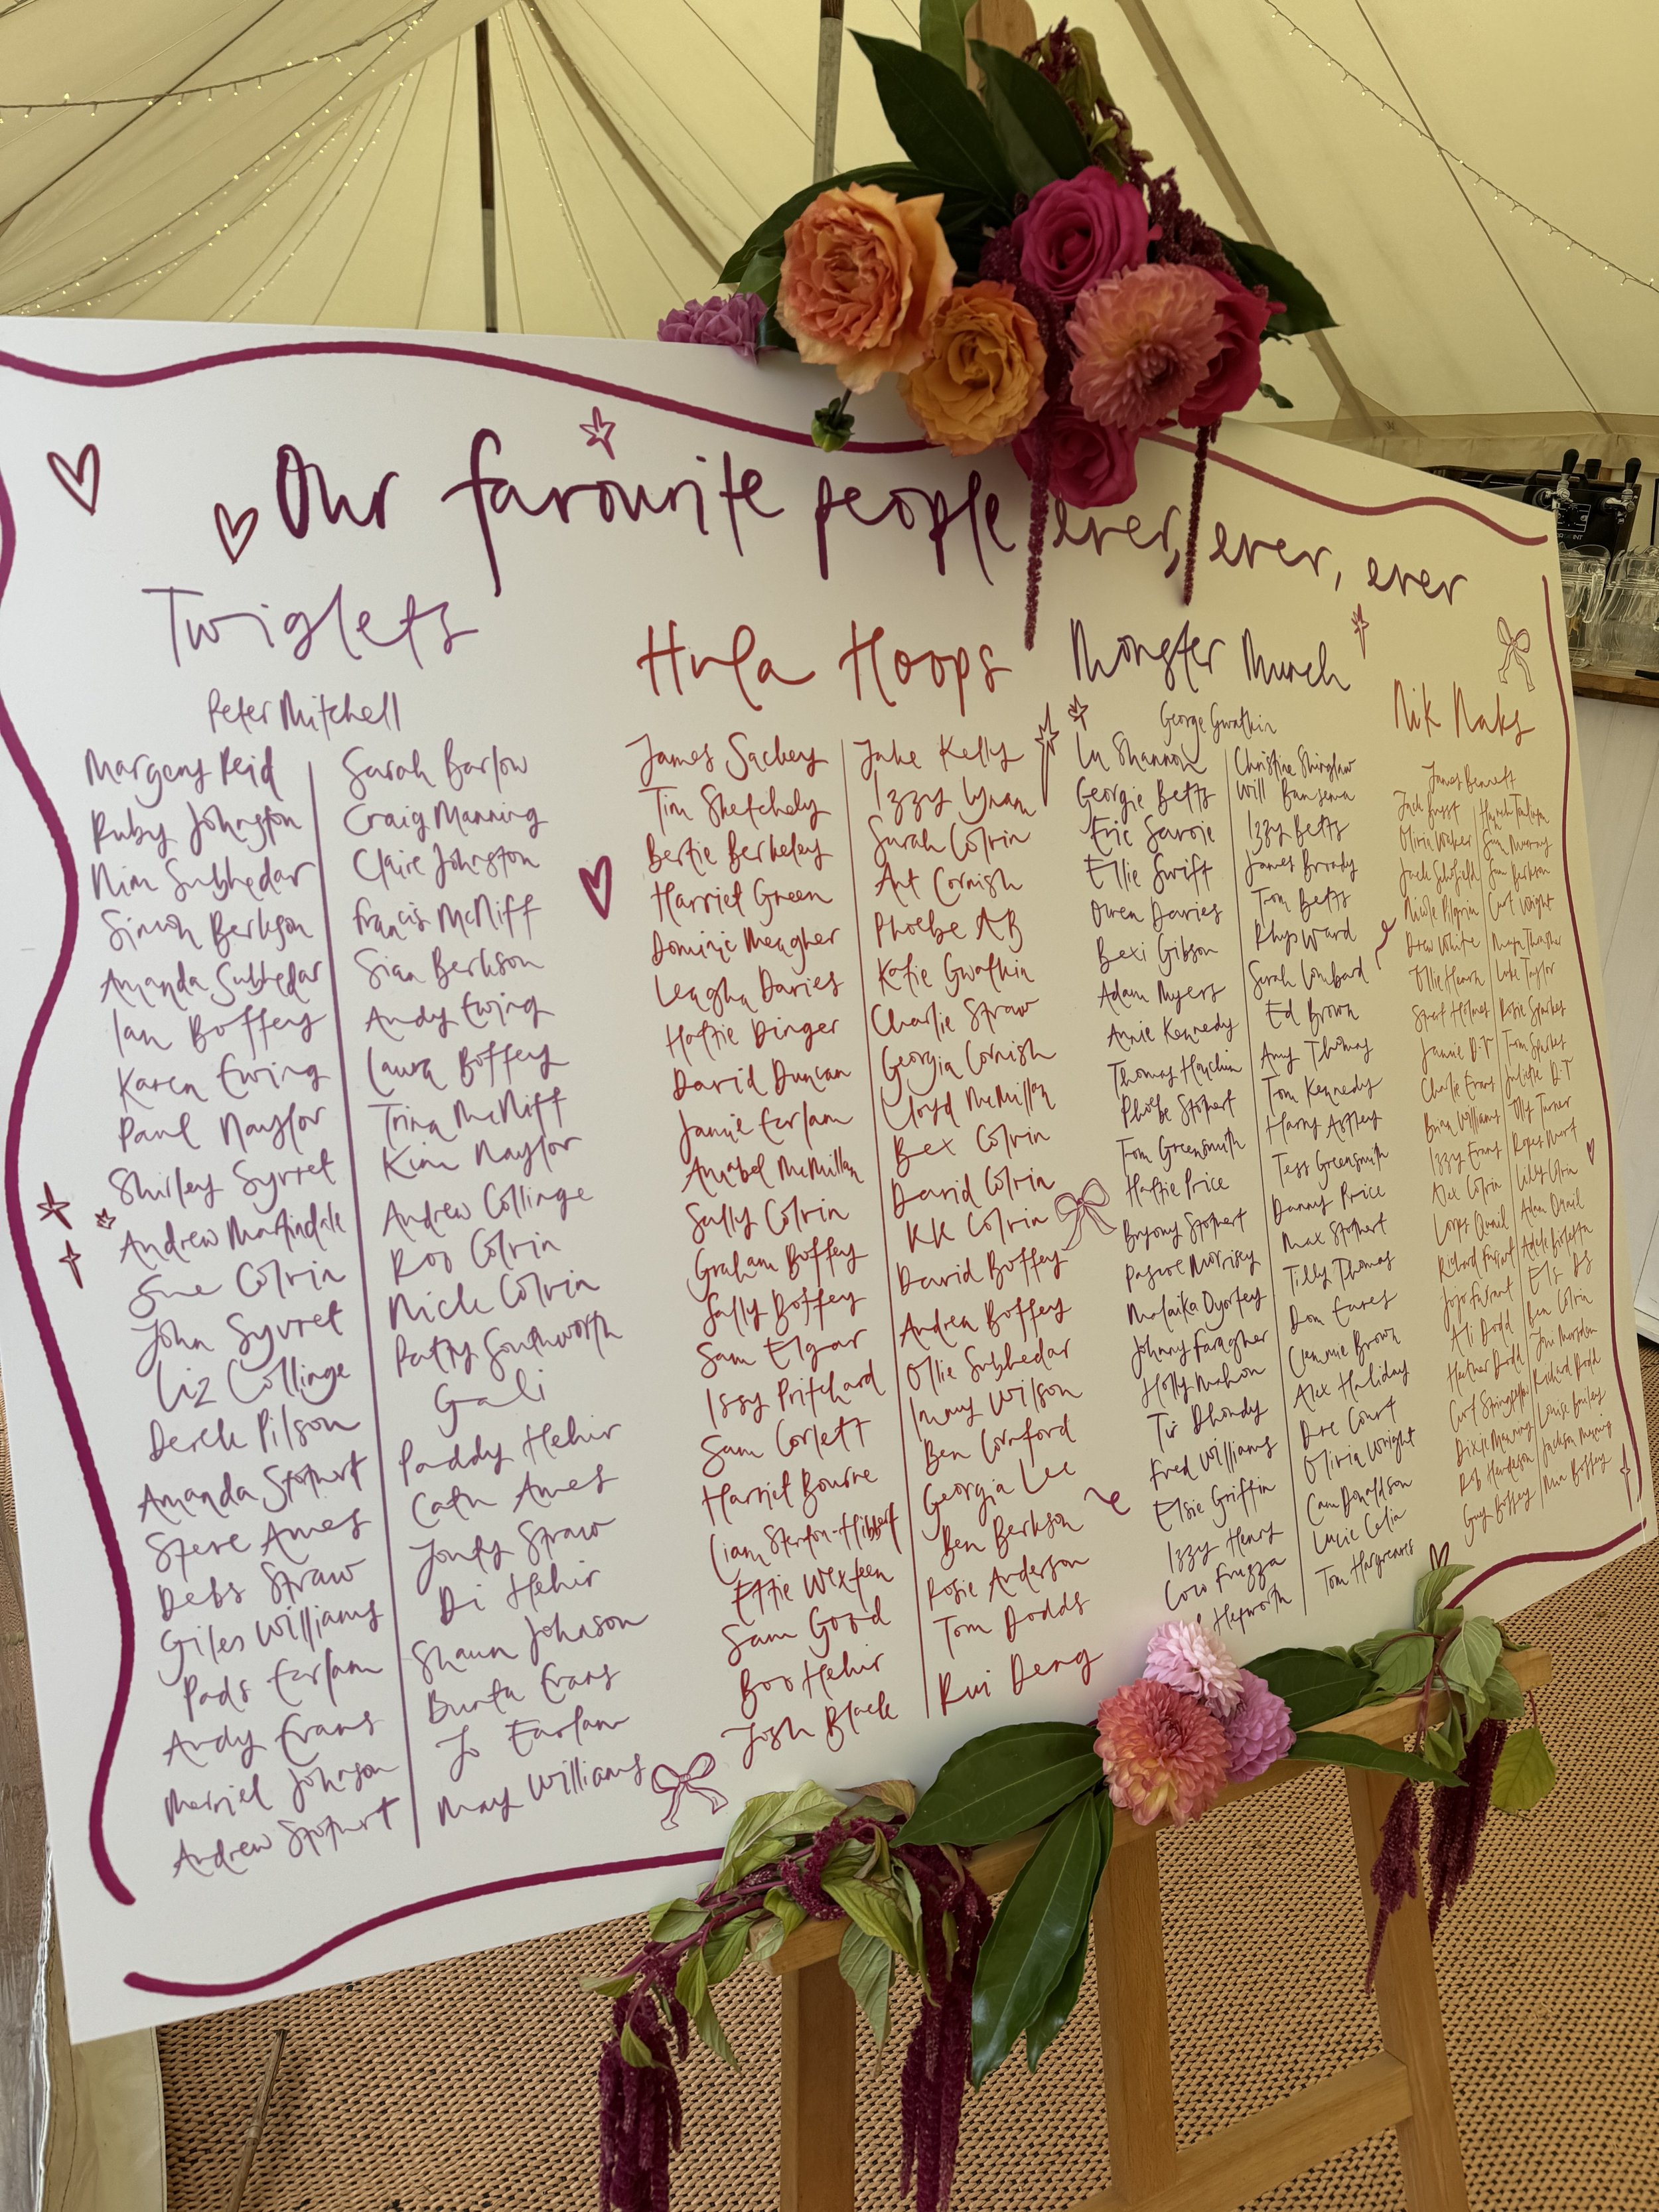 Our favourite people ever, ever, ever
Twiglets
Peter Mitchell
Margeny Reid
Ruby Johnston
Nim Subhedar
Simon Berkson
Amanda Subhedar
Ian Boffey
Karen Ewing
Paul Naylor
Shirley Syvret
Andrew Martindale
Sue Colvin
John Syvret
Liz Collinge
Derek Pilson
Amanda Stothert
Steve Ames
Debs Straw
Giles Williams
Pads Earlam
Andy Evans
Merriel Johnson
Andrew Stothert
Sarah Barlow
Craig Manning
Claire Johnston
Francis McNiff
Sian Berkson
Andy Ewing
Laura Boffey
Trina McNiff
Kim Naylor
Andrew Collinge
Roo Colvin
Nick Colvin
Patty Southworth
Gali
Paddy Hehir
Cath Ames
Jonty Straw
Di Hehir
Shaun Johnson
Bunta Evans
Jo Earlam
May Williams
Hula Hoops
James Sackey
Tim Sketchely
Bertie Berkeley
Harriet Green
Dominic Meagher
Leagha Davies
Hattie Dinger
David Duncan
Jamie Earlam
Annabel McMillan
Sally Colvin
Graham Boffey
Sally Boffey
Sam Elgar
Issy Pritchard
Sam Corlett
Harriet Bourne
Liam Stenton-Hibbert
Effie Wexteen
Sam Good
Boo Hehir
Josh Black
Jake Kelly
Izzy Lynam
Sarah Colvin
Ant Cornish
Phoebe AB
Katie Gwatkin
Charlie Straw
Georgia Cornish
Lloyd McMillan
Bex Colvin
David Colvin
KK Colvin
David Boffey
Andrea Boffey
Ollie Subhedar
Immy Wilson
Ben Cornford
Georgia Lee
Ben Berkson
Rosie Anderson
Tom Dodds
Rui Deng
Monster Munch
George Gwatkin
Lu Shannon
Georgie Betts
Eric Savoie
Ellie Swift
Owen Davies
Bexi Gibson
Adam Myers
Annie Kennedy
Thomas Houchin
Phoebe Stothert
Tom Greensmith
Hattie Price
Bryony Stothert
Pascoe Morrisey
Malaika Oyortey
Johnny Faragher
Holly Mahon
Tir Dhondy
Fred Williams
Elsie Griffin
Izzy Henry
Coco Fruzza
Hepworth
Christine Shinglaw
Will Bansema
Izzy Betts
James Broady
Tom Betts
Rhys Ward
Sarah Lombard
Ed Brown
Amy Thomas
Tom Kennedy
Harry Astley
Tess Greensmith
Danny Price
Max Stothert
Tilly Thomas
Dom Eares
Clemmie Brown
Alex Haliday
Dre Court
Olivia Wright
Cam Donaldson
Lucie Celia
Tom Hargreaves
Nik Naks
James Bennett
Olivia Walker
Jack Schofield
Nicole Pilgrim
Drew White
Ollie Hearn
Stuart Holmes
Jamie D-T
Charlie Evans
Brian Williams
Izzy Evans
Alex Colvin
Lorps Quail
Richard Fursant
Jojo Fursant
Ali Dodd
Heather Dodd
Curt Stringfellow
Dixie Manning
Rob Henderson
Guy Boffey
Hannah
Sam Murray
Sam Berkson
Curt Wright
Luke Taylor
Rosie Sparkes
Tom Sparkes
Juliette D-T
Olly Turner
Rupert Mort
Lilly Colvin
Adam Quail
Adele
Ben Colvin
Joni Marsden
Richard Dodd
Louise Bailey
Jackson Manning
Mia Boffey